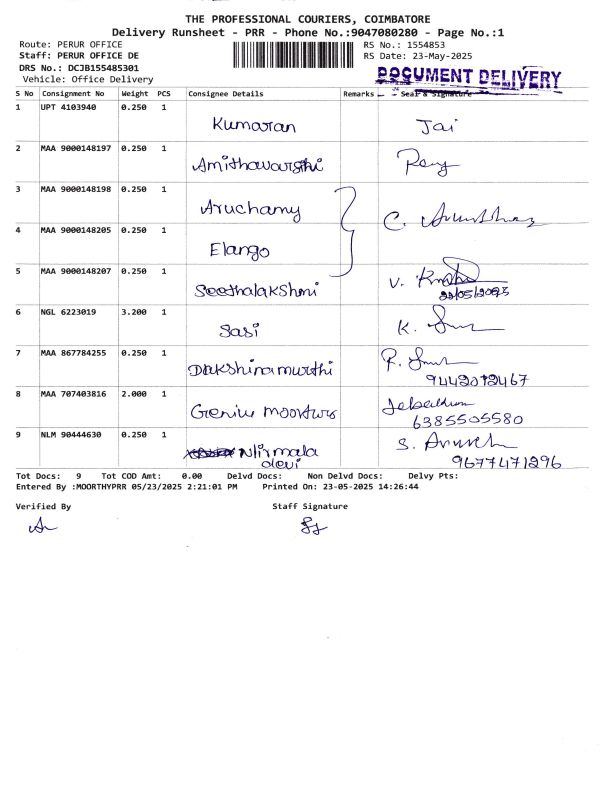 THE PROFESSIONAL COURIERS, COIMBATORE
Delivery Runsheet - PRR - Phone No.:9047080280 - Page No.:1
Route: PERUR OFFICE RS No.: 1554853
Staff: PERUR OFFICE DE RS Date: 23-May-2025
DRS No.: DCJB155485301
Vehicle: Office Delivery
DOCUMENT DELIVERY
S No Consignment No Weight PCS Consignee Details Remarks Seal & Signature
1 UPT 4103940 0.250 1 Kumaran Jai
2 MAA 9000148197 0.250 1 Amithavarshi
3 MAA 9000148198 0.250 1 Aruchamy
4 MAA 9000148205 0.250 1 Elango
5 MAA 9000148207 0.250 1 Seethalakshmi V.
6 NGL 6223019 3.200 1 Sasi K.
7 MAA 867784255 0.250 1 Dakshinamurthi
9442012467
8 MAA 707403816 2.000 1 Genius
6385505580
9 NLM 90444630 0.250 1 Nirmala S.
devi 9677471296
Tot Docs: 9 Tot COD Amt: 0.00 Delvd Docs: Non Delvd Docs: Delvy Pts:
Entered By :MOORTHYPRR 05/23/2025 2:21:01 PM Printed On: 23-05-2025 14:26:44
Verified By Staff Signature